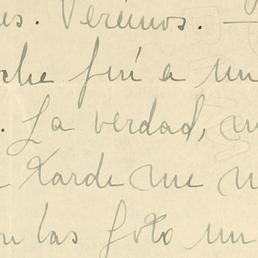 es. Veremos. —
che fui a un
. La verdad, m
tarde me
las foto un